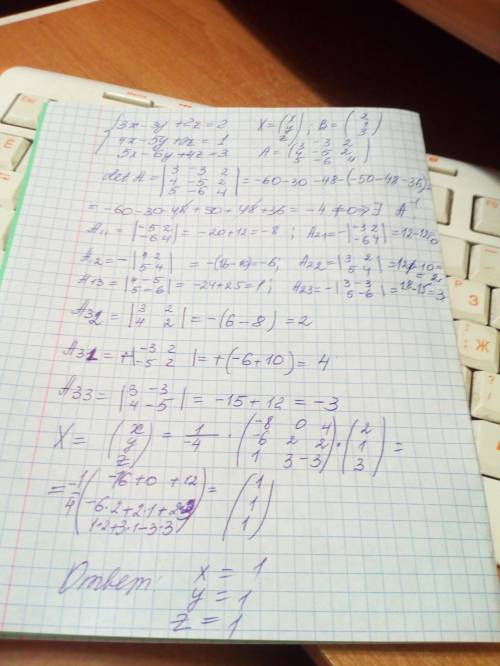 3x-3y+2z=2   X=(x y z); B=(2 1 3)
4x-5y+2z=1
5x-6y+4z=3   A=(3 -3 2 4 -5 2 5 -6 4)
det A = |3 -3 2 4 -5 2 5 -6 4| = -60-30-48-(-50-48-36)=
= -60-30-48+50+48+36= -4 ≠0⇒∃ A⁻¹
A11= |-5 2 -6 4| = -20+12=-8 ; A21=-|-3 2 -6 4|=12-12=0
A12=-|4 2 5 4| = -(16-10)=-6; A22=|3 2 5 4|=12-10=2;
A13=|4 -5 5 -6| = -24+25=1; A23=-|3 -3 5 -6|=18-15=3
A32=|3 2 4 2| = -(6-8)=2
A31=+|-3 2 -5 2|=+(-6+10)=4
A33=|3 -3 4 -5| = -15+12=-3
X= (x y z) = 1/-4 · (-8 0 4 -6 2 2 1 3 -3)·(2 1 3)=
=-1/4(-16+0+12 -6·2+2·1+2·3 1·2+3·1-3·3)=(1 1 1)
Ответ: x=1
y=1
z=1